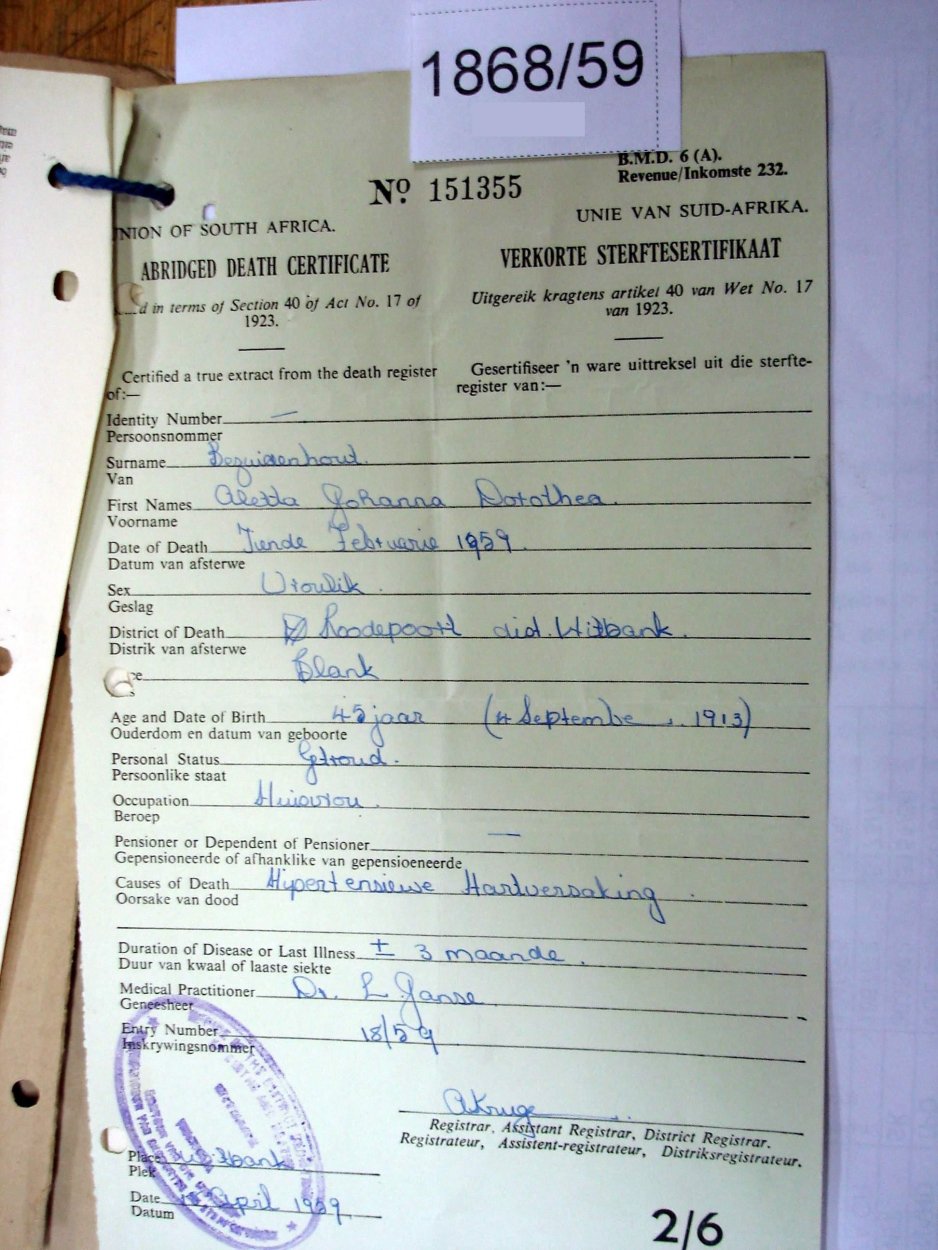 1868/59
B.M.D. 6 (A).
Revenue/Inkomste 232.
No 151355
NION OF SOUTH AFRICA.
UNIE VAN SUID-AFRIKA.
ABRIDGED DEATH CERTIFICATE
VERKORTE STERFTESERTIFIKAAT
d in terms of Section 40 of Act No. 17 of
1923.
Uitgereik kragtens artikel 40 van Wet No. 17
van 1923.
Certified a true extract from the death register
of:—
Gesertifiseer 'n ware uittreksel uit die sterfte-
register van:—
Identity Number —
Persoonsnommer
Surname Bezuidenhout.
Van
First Names Aletta Johanna Dorothea.
Voorname
Date of Death Februarie 1959.
Datum van afsterwe
Sex Vroulik.
Geslag
District of Death Roodepoort dist. Witbank.
Distrik van afsterwe
Blank
Age and Date of Birth 45 jaar (4 Septembe 1913)
Ouderdom en datum van geboorte
Personal Status Getroud.
Persoonlike staat
Occupation Huisvrou.
Beroep
Pensioner or Dependent of Pensioner —
Gepensioneerde of afhanklike van gepensioeneerde
Causes of Death Hypertensiewe Hartversaking.
Oorsake van dood
Duration of Disease or Last Illness ± 3 maande.
Duur van kwaal of laaste siekte
Medical Practitioner Dr. L. Ganse
Geneesheer
Entry Number 18/59
Inskrywingsnommer
Registrar, Assistant Registrar, District Registrar.
Registrateur, Assistent-registrateur, Distriksregistrateur.
Place Witbank
Plek
Date April 1959.
Datum
2/6